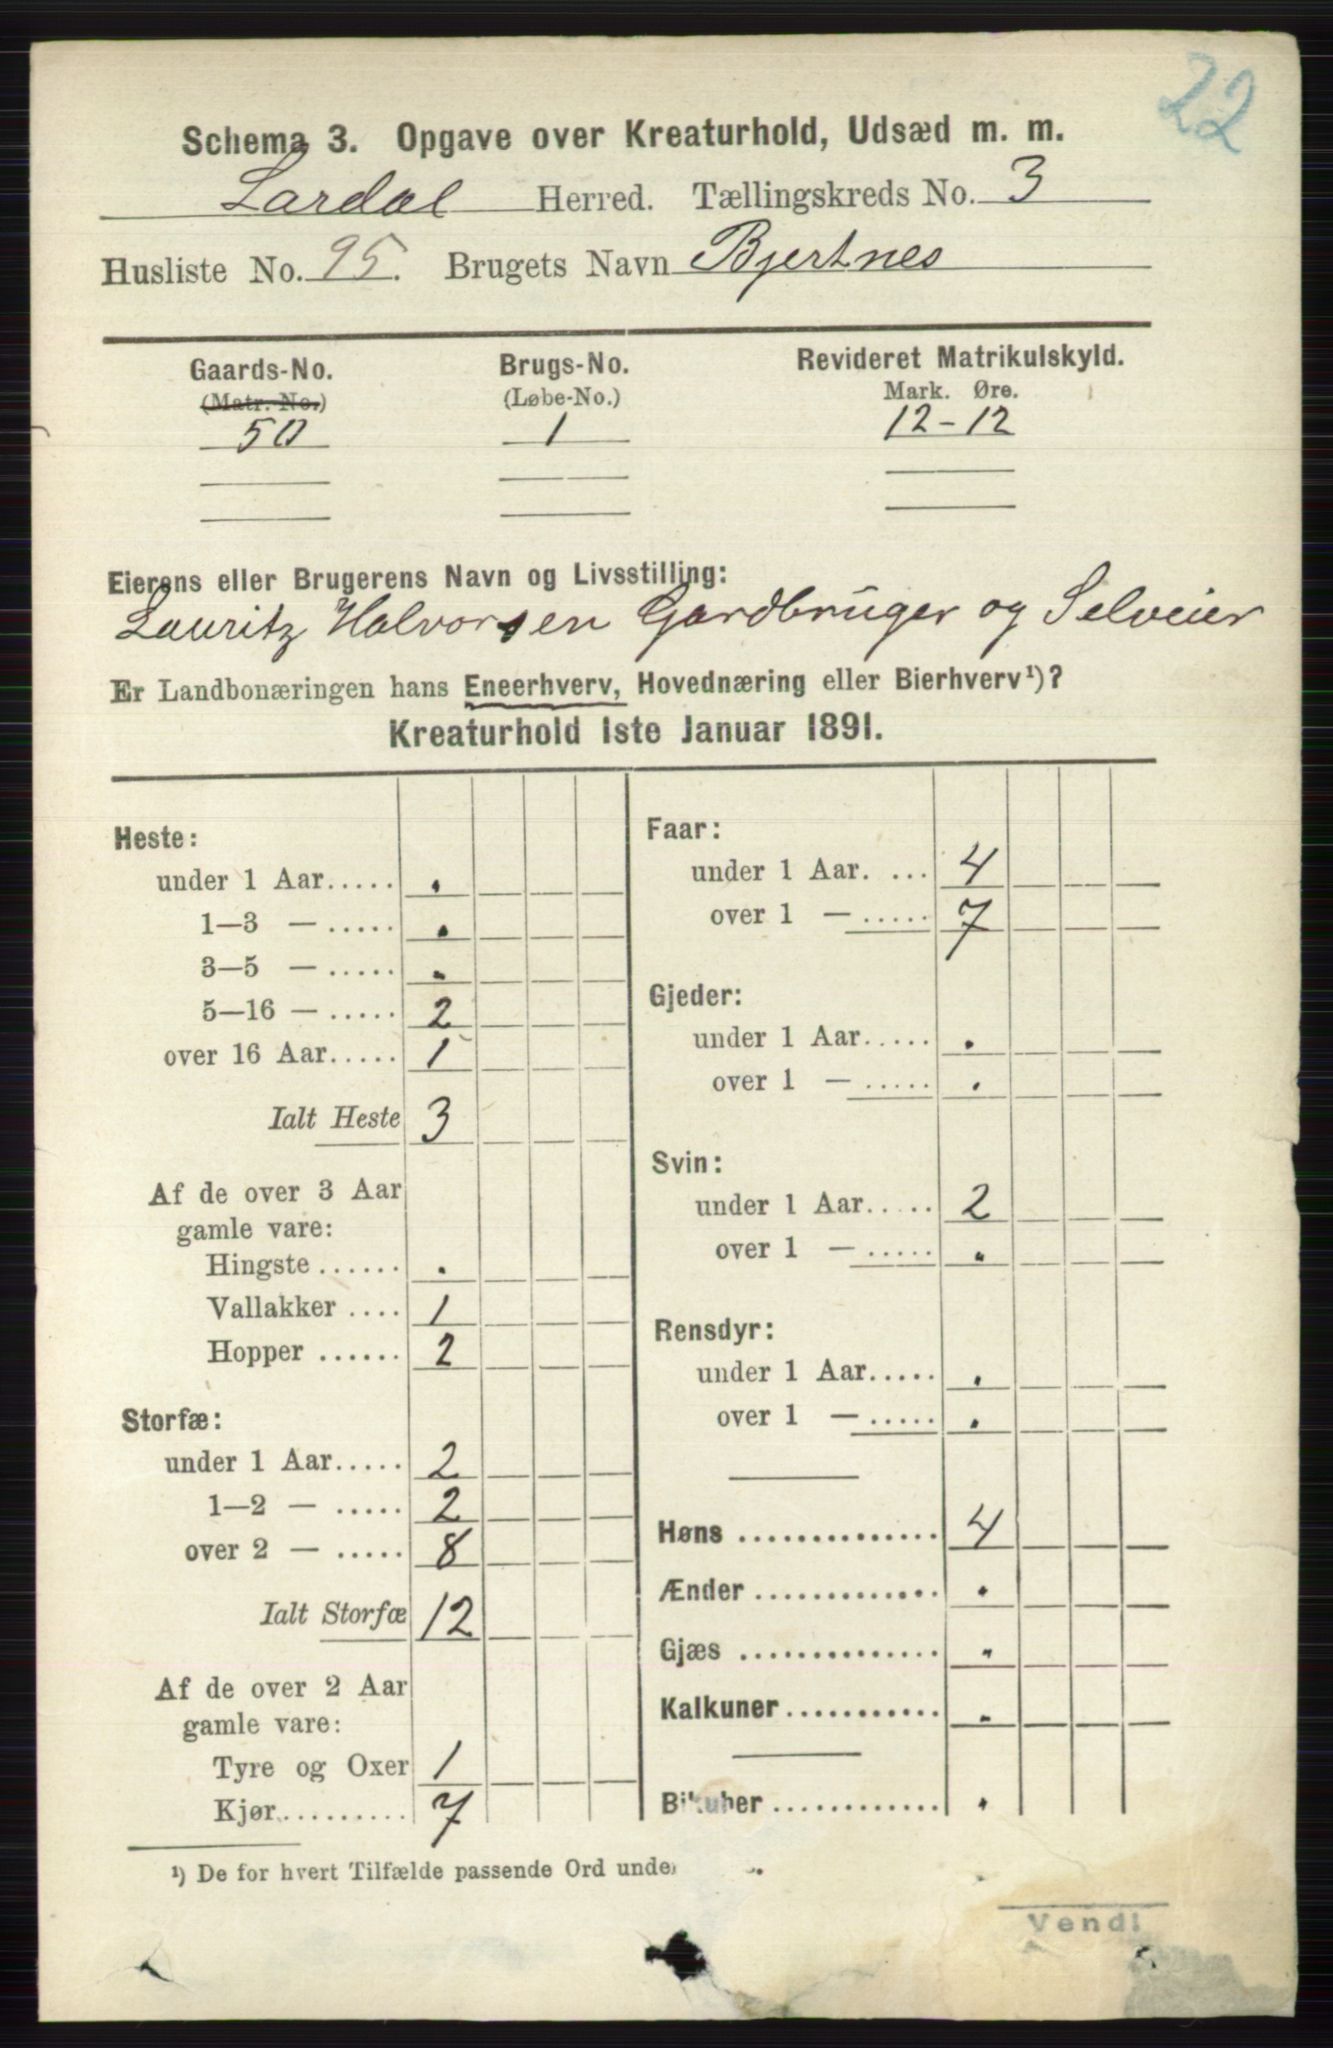 22
Schema 3. Opgave over Kreaturhold, Udsæd m. m.
Lardal Herred. Tællingskreds No. 3
Husliste No. 95. Brugets Navn Bjertnes
Gaards-No. Brugs-No. Revideret Matrikulskyld.
(Matr. No.) (Løbe-No.) Mark. Øre.
50 1 12-12
Eierens eller Brugerens Navn og Livsstilling:
Lauritz Halvorsen Gardbruger og Selveier
Er Landbonæringen hans Eneerhverv, Hovednæring eller Bierhverv¹)?
Kreaturhold 1ste Januar 1891.
Heste:
under 1 Aar..... .
1—3 — ..... .
3—5 — ..... .
5—16 — ..... 2
over 16 Aar..... 1
Ialt Heste 3
Af de over 3 Aar
gamle vare:
Hingste ...... .
Vallakker .... 1
Hopper ...... 2
Storfæ:
under 1 Aar..... 2
1—2 — ..... 2
over 2 — ..... 8
Ialt Storfæ 12
Af de over 2 Aar
gamle vare:
Tyre og Oxer 1
Kjør.......... 7
Faar:
under 1 Aar. ... 4
over 1 — ..... 7
Gjeder:
under 1 Aar..... .
over 1 — ..... .
Svin:
under 1 Aar..... 2
over 1 — ..... .
Rensdyr:
under 1 Aar..... .
over 1 — ..... .
Høns .............. 4
Ænder ............. .
Gjæs .............. .
Kalkuner ........... .
Bikuber ............ .
¹) De for hvert Tilfælde passende Ord unde
Vend!